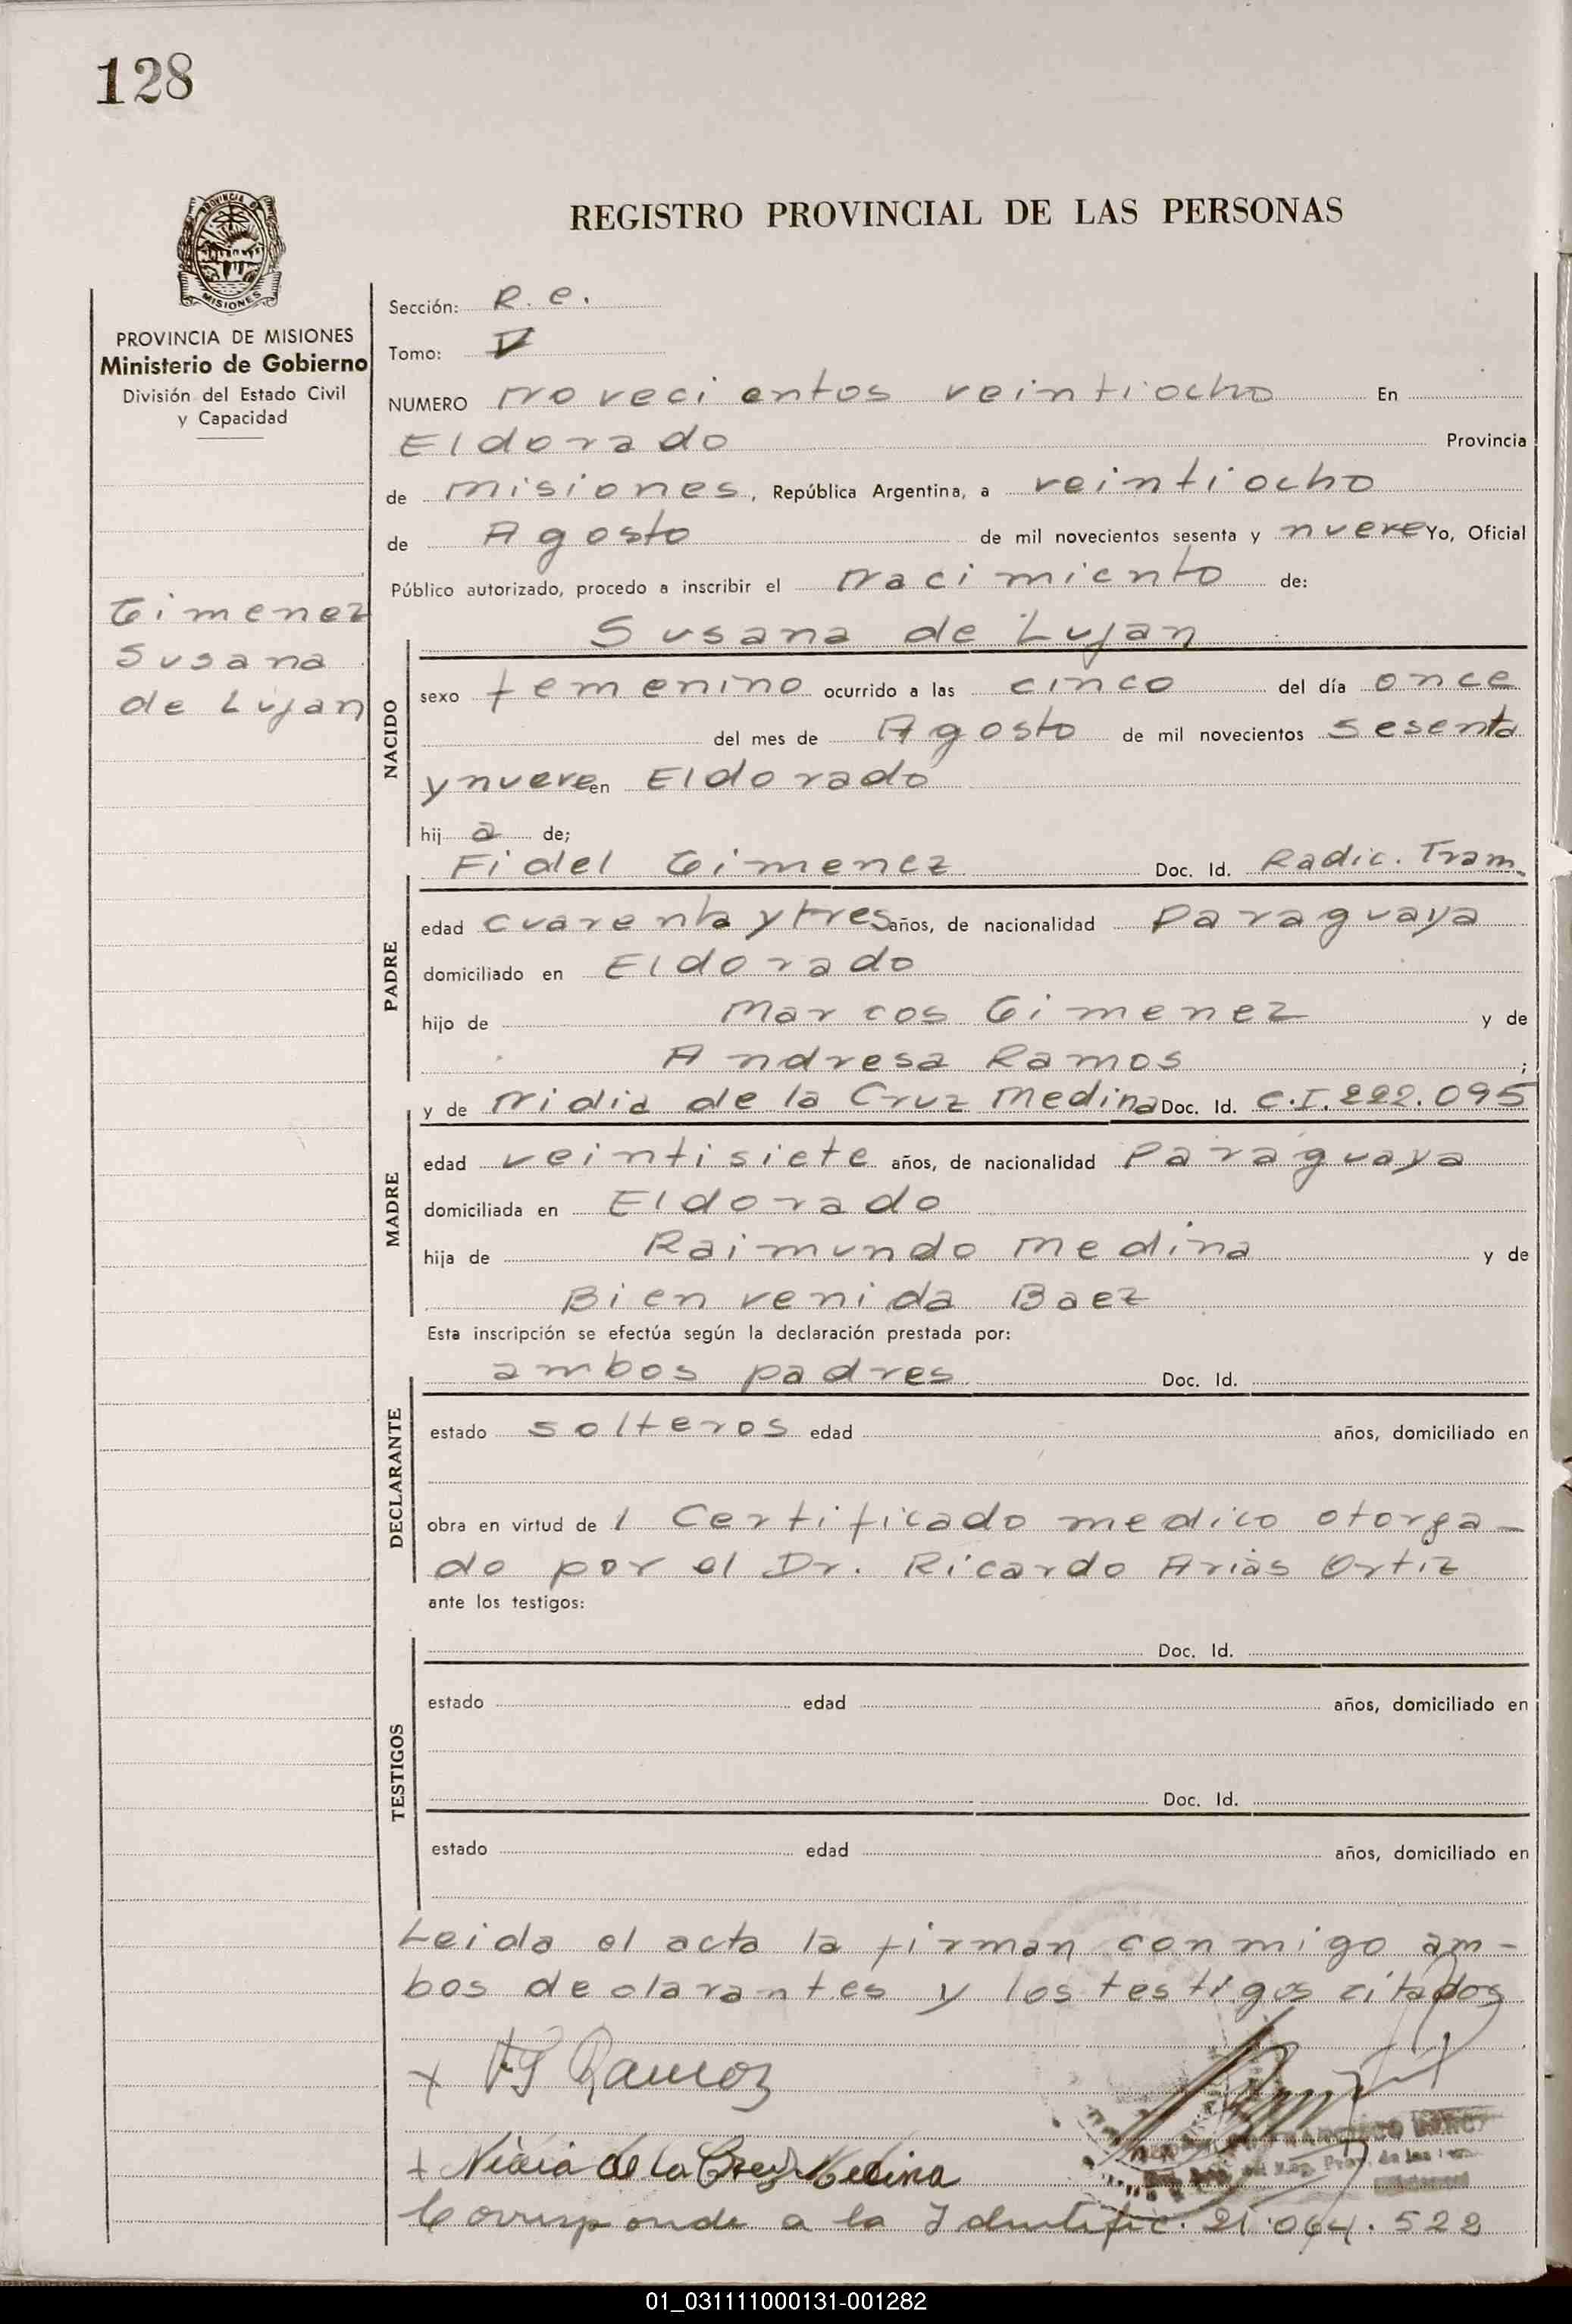 128
PROVINCIA DE
MISIONES
REGISTRO PROVINCIAL DE LAS PERSONAS
PROVINCIA DE MISIONES
Ministerio de Gobierno
División del Estado Civil
y Capacidad
Gimenez
Susana
de Lujan
Sección: R. e.
Tomo: V
NUMERO Novecientos veintiocho En
Eldorado Provincia
de Misiones, República Argentina, a veintiocho
de Agosto de mil novecientos sesenta y nueve Yo, Oficial
Público autorizado, procedo a inscribir el Nacimiento de:
Susana de Lujan
NACIDO
sexo femenino ocurrido a las cinco del día once
del mes de Agosto de mil novecientos sesenta
y nueve en Eldorado
hij a de;
Fidel Gimenez Doc. Id. Radic. Tram.
PADRE
edad cuarenta y tres años, de nacionalidad Paraguaya
domiciliado en Eldorado
hijo de Marcos Gimenez y de
Andresa Ramos ;
y de Nidia de la Cruz Medina Doc. Id. C.I. 222.095
MADRE
edad veintisiete años, de nacionalidad Paraguaya
domiciliada en Eldorado
hija de Raimundo Medina y de
Bienvenida Baez
Esta inscripción se efectúa según la declaración prestada por:
ambos padres Doc. Id.
DECLARANTE
estado solteros edad años, domiciliado en
obra en virtud de 1 Certificado medico otorga-
do por el Dr. Ricardo Arias Ortiz
ante los testigos:
Doc. Id.
TESTIGOS
estado edad años, domiciliado en
Doc. Id.
estado edad años, domiciliado en
Leida el acta la firman conmigo am-
bos declarantes y los testigos citados
+ Ramoz
+ Nidia de la Cruz Medina
Corresponde a la Identific. 21.064.522
01_031111000131-001282